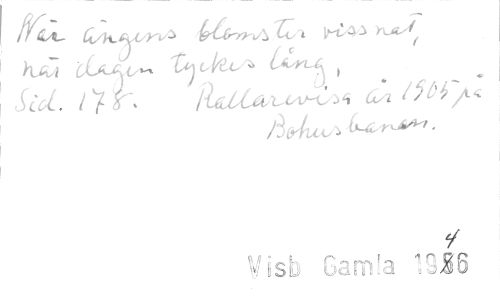 När ängens blomster vissnat,
när dagen tyckes lång,
Sid. 178. Rallarevisa år 1905 på
Bohusbanan.
Visb Gamla 1946